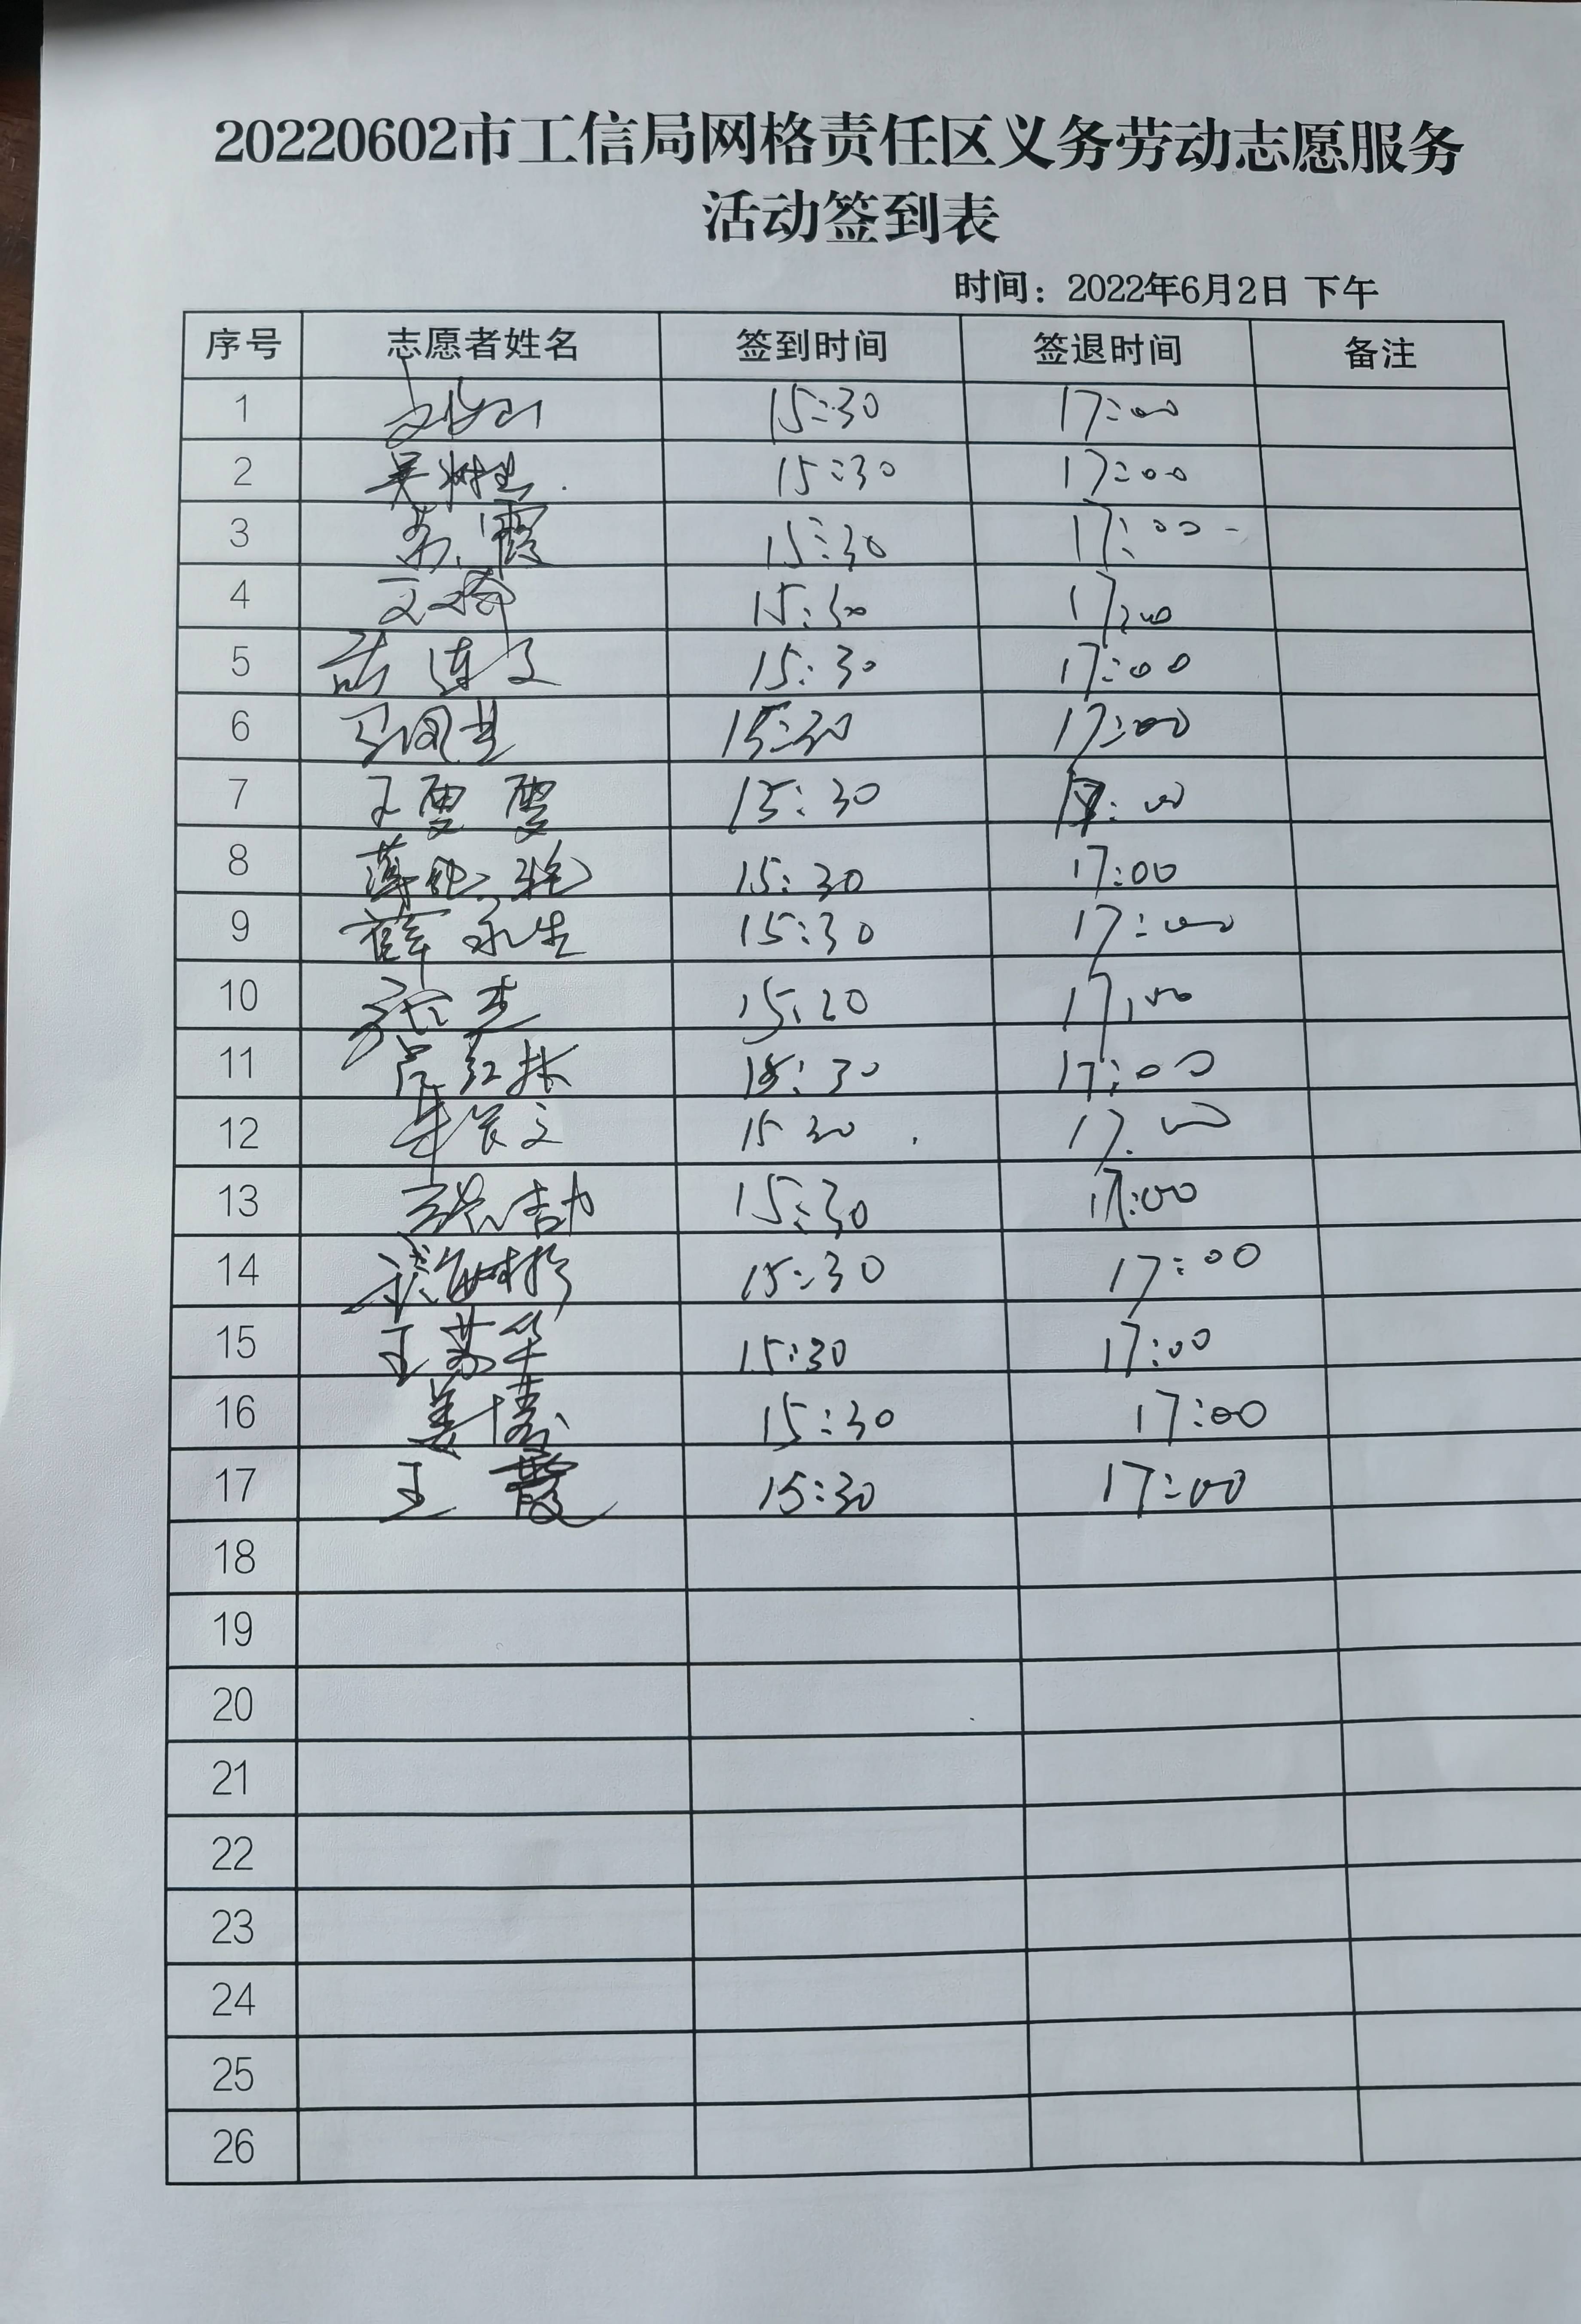 20220602市工信局网格责任区义务劳动志愿服务
活动签到表
时间：2022年6月2日 下午
序号 志愿者姓名 签到时间 签退时间 备注
1 15:30 17:00
2 吴树忠 15:30 17:00
3 苏霞 15:30 17:00
4 15:30 17:00
5 连文 15:30 17:00
6 马国 15:30 17:00
7 王雯雯 15:30 17:00
8 薄艳艳 15:30 17:00
9 薛永生 15:30 17:00
10 张杰 15:20 17:00
11 红林 15:30 17:00
12 文 15 30 17:00
13 张喆 15:30 17:00
14 15:30 17:00
15 王苏华 15:30 17:00
16 姜 15:30 17:00
17 王霞 15:30 17:00
18
19
20
21
22
23
24
25
26